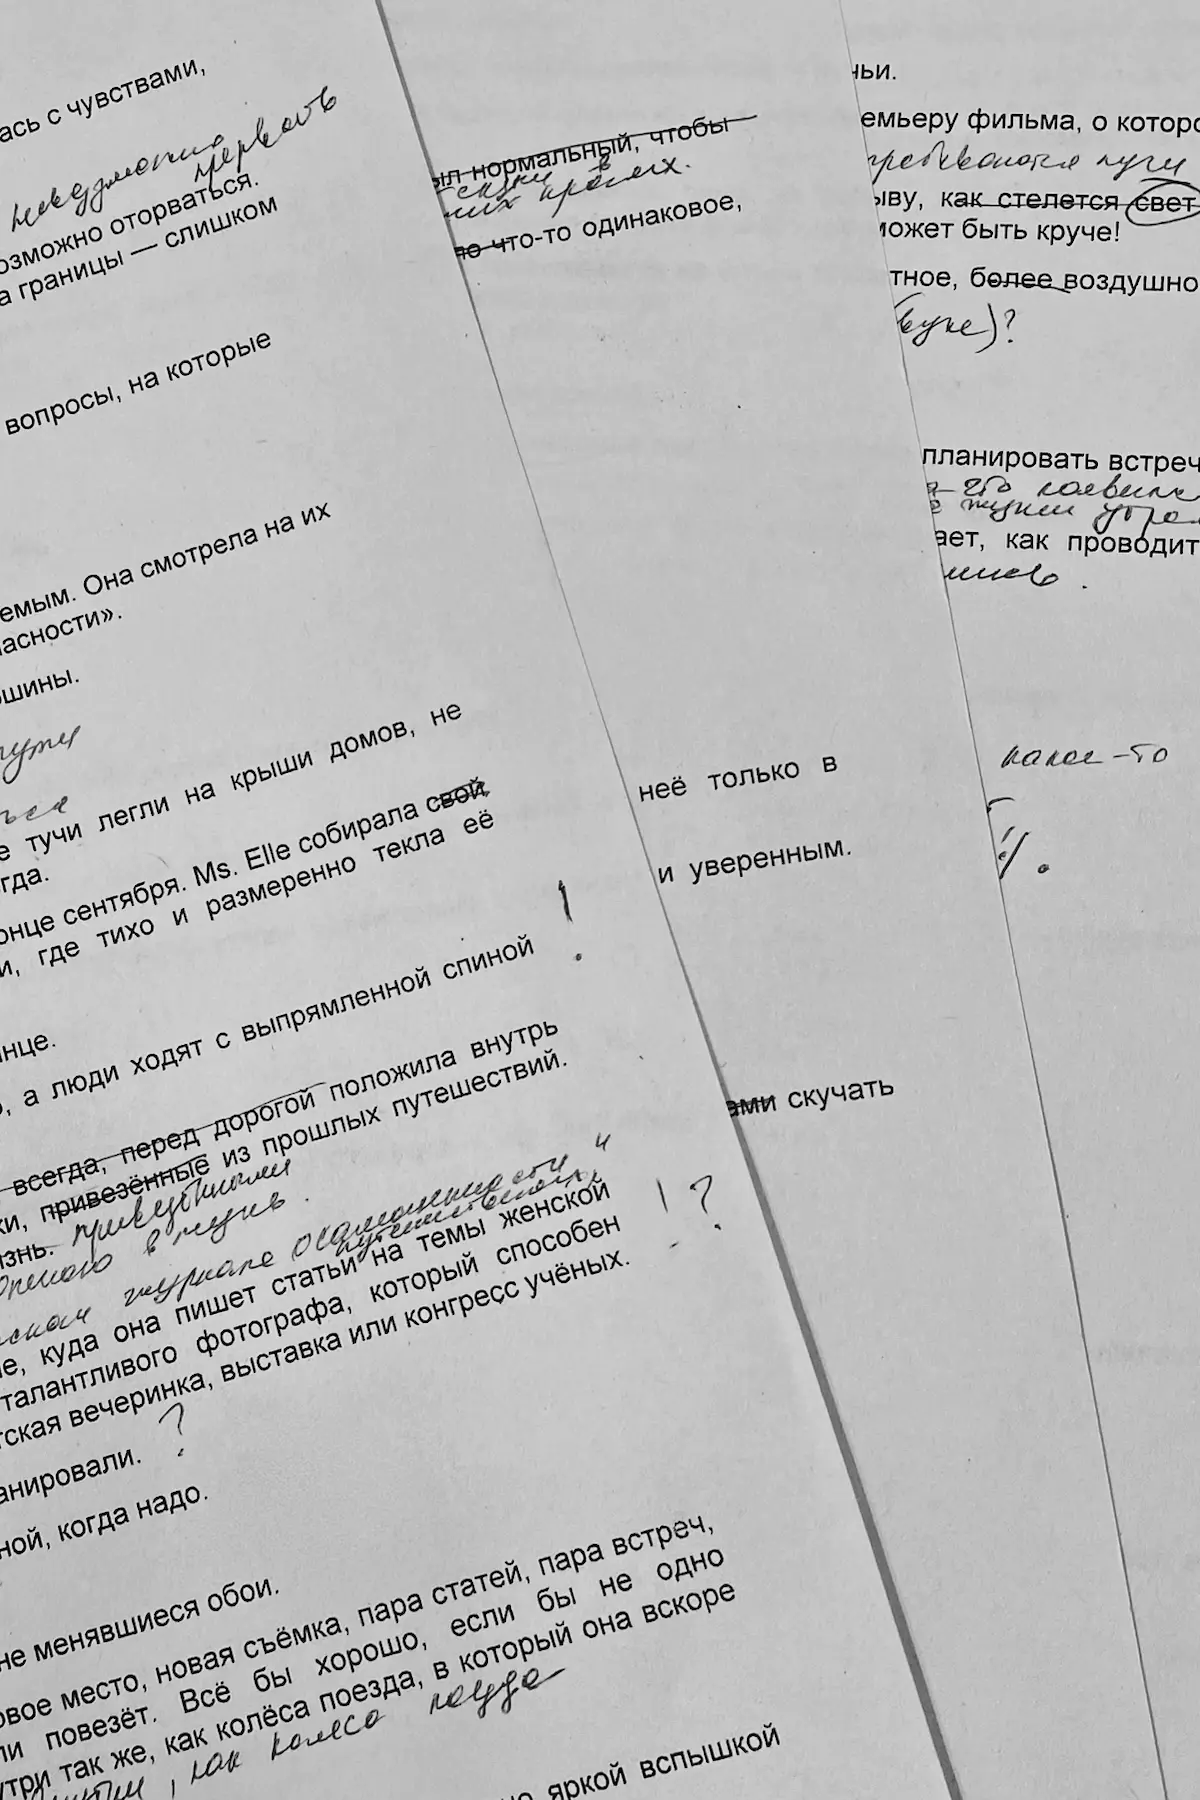 ась с чувствами,
невозможно
прервать
озможно оторваться.
а границы — слишком
вопросы, на которые
емым. Она смотрела на их
асности».
ршины.
е тучи легли на крыши домов, не
гда.
онце сентября. Ms. Elle собирала свой
и, где тихо и размеренно текла её
!
нце.
о, а люди ходят с выпрямленной спиной
всегда, перед дорогой положила внутрь
ки, привезённые из прошлых путешествий.
изнь. привезёнными
в жизнь.
журнале осознанности и
путешествиях,
ле, куда она пишет статьи на темы женской
! ?
талантливого фотографа, который способен
тская вечеринка, выставка или конгресс учёных.
анировали. ?
ной, когда надо.
не менявшиеся обои.
овое место, новая съёмка, пара статей, пара встреч,
ли повезёт. Всё бы хорошо, если бы не одно
утри так же, как колёса поезда, в который она вскоре
, как колесо поезда
но яркой вспышкой
ыл нормальный, чтобы
в
них кроется.
ло что-то одинаковое,
неё только в
и уверенным.
ами скучать
ньи.
емьеру фильма, о которо
пробиваются лучи
ыву, как стелется свет
может быть круче!
тное, более воздушно
планировать встреч
это
жизни
ает, как проводит
какое-то